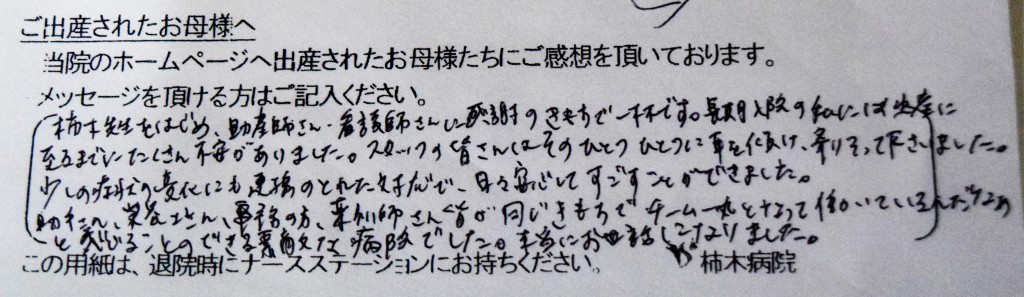 ご出産されたお母様へ
当院のホームページへ出産されたお母様たちにご感想を頂いております。
メッセージを頂ける方はご記入ください。
柿木先生をはじめ、助産師さん・看護師さんに感謝のきもちで一杯です。長期入院の私には出産に
至るまでにたくさん不安がありました。スタッフの皆さんはそのひとつひとつに耳を傾け、寄りそって下さいました。
少しの症状の変化にも連携のとれた対応で、日々安心してすごすことができました。
助手さん、栄養士さん、事務の方、薬剤師さん皆が同じきもちでチーム一丸となって働いているんだなあ
と感じることのできる素敵な病院でした。本当にお世話になりました。
この用紙は、退院時にナースステーションにお持ちください。 柿木病院